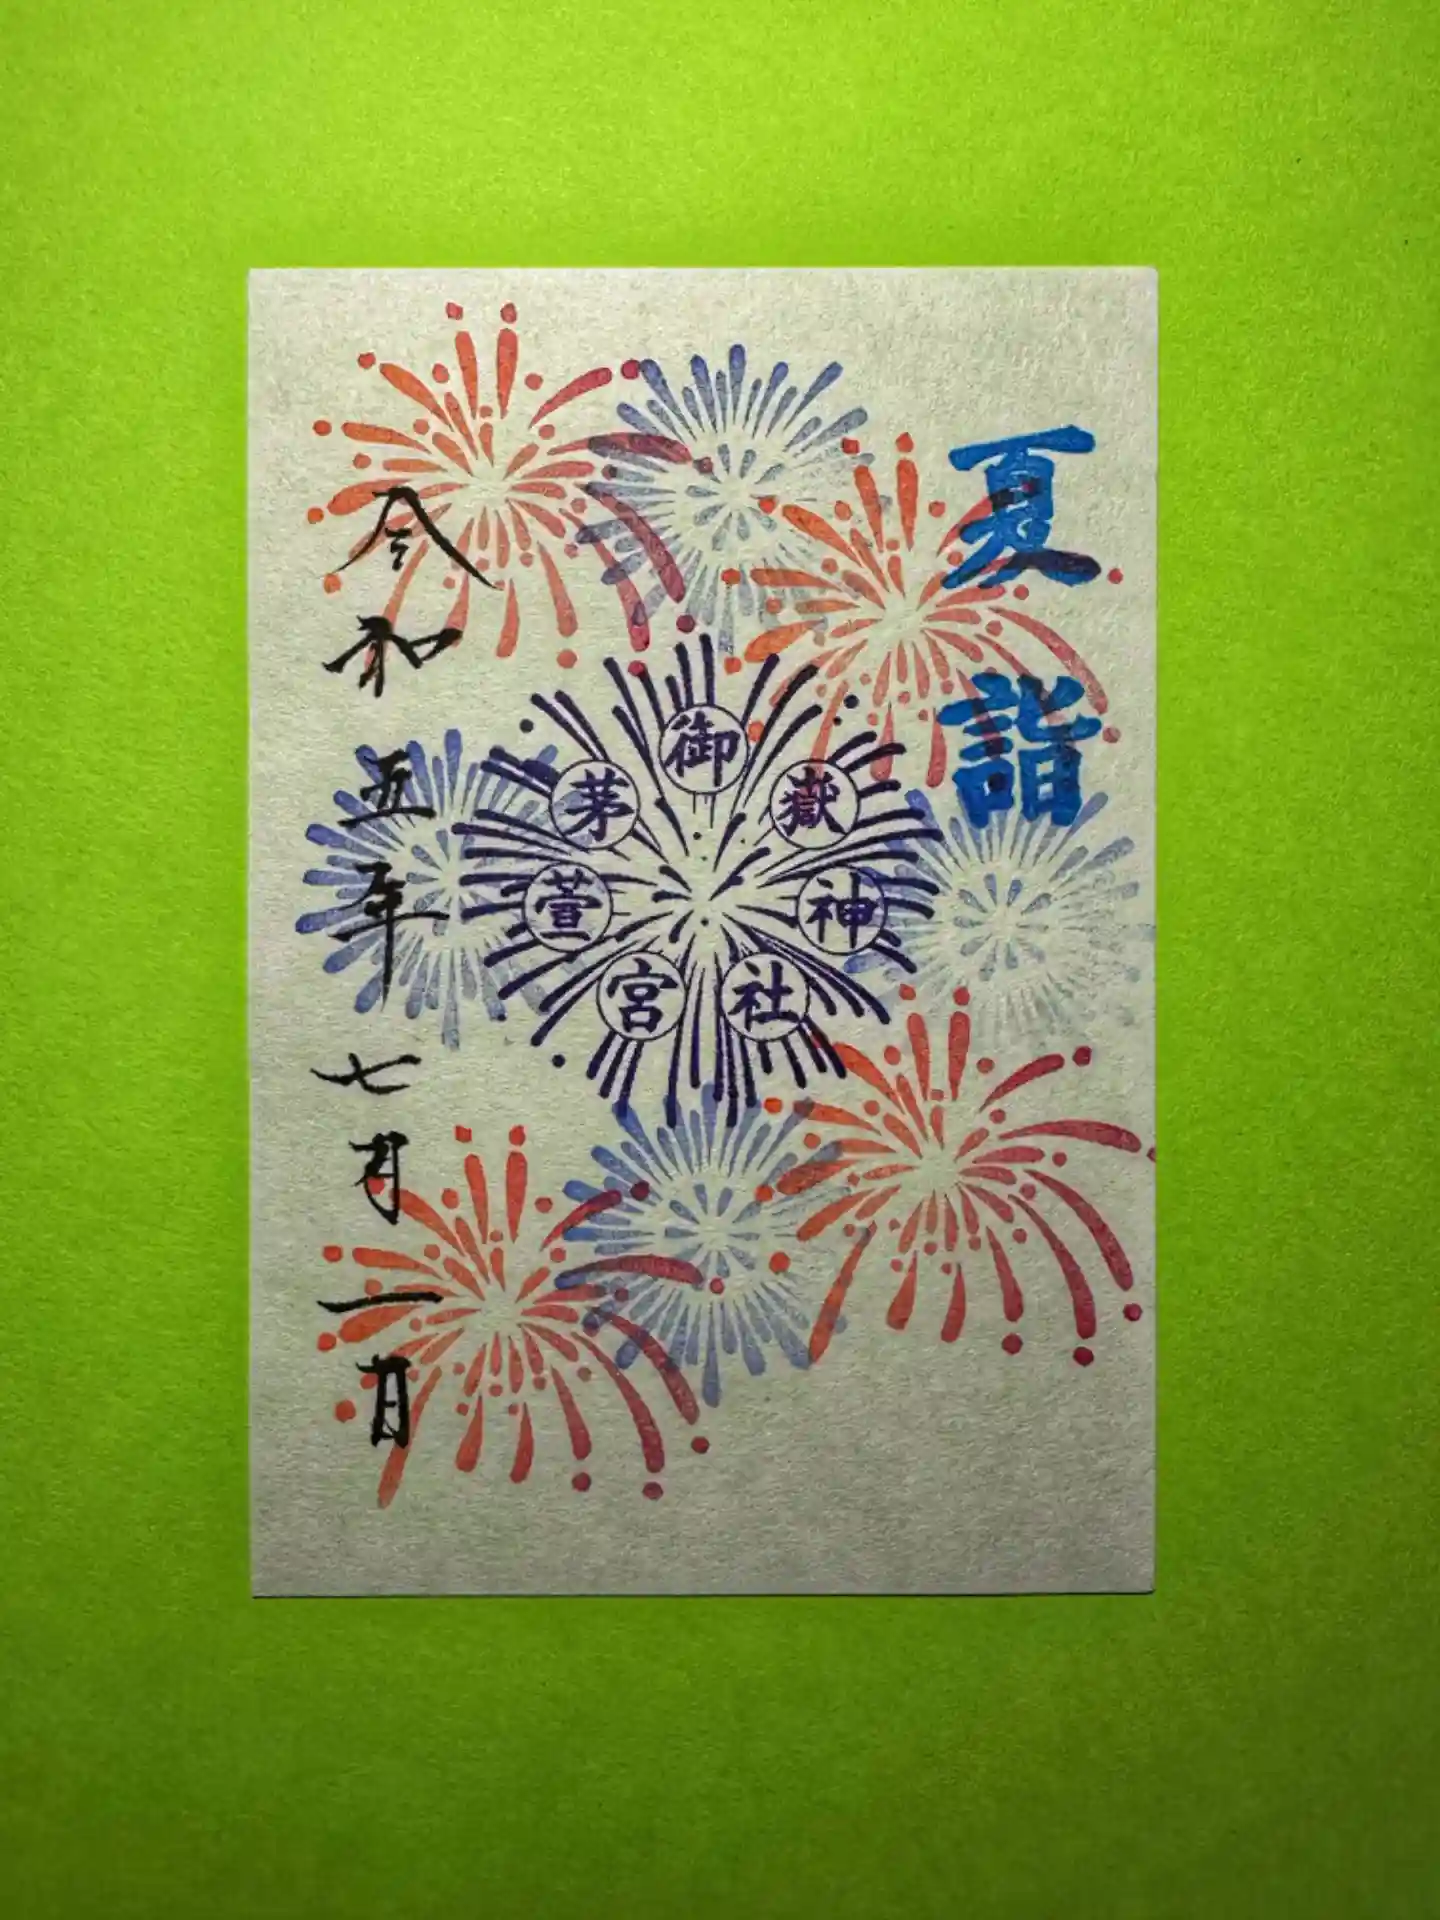 夏詣
御嶽神社茅萱宮
令和五年七月一日